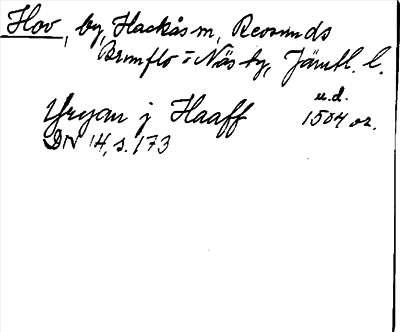 Hov, by, Hackås sn, Revsunds
Brunflo o Näs tg, Jämtl. l.
u.d.
Yryan j Haaff 1504 or.
DN 14, s. 173